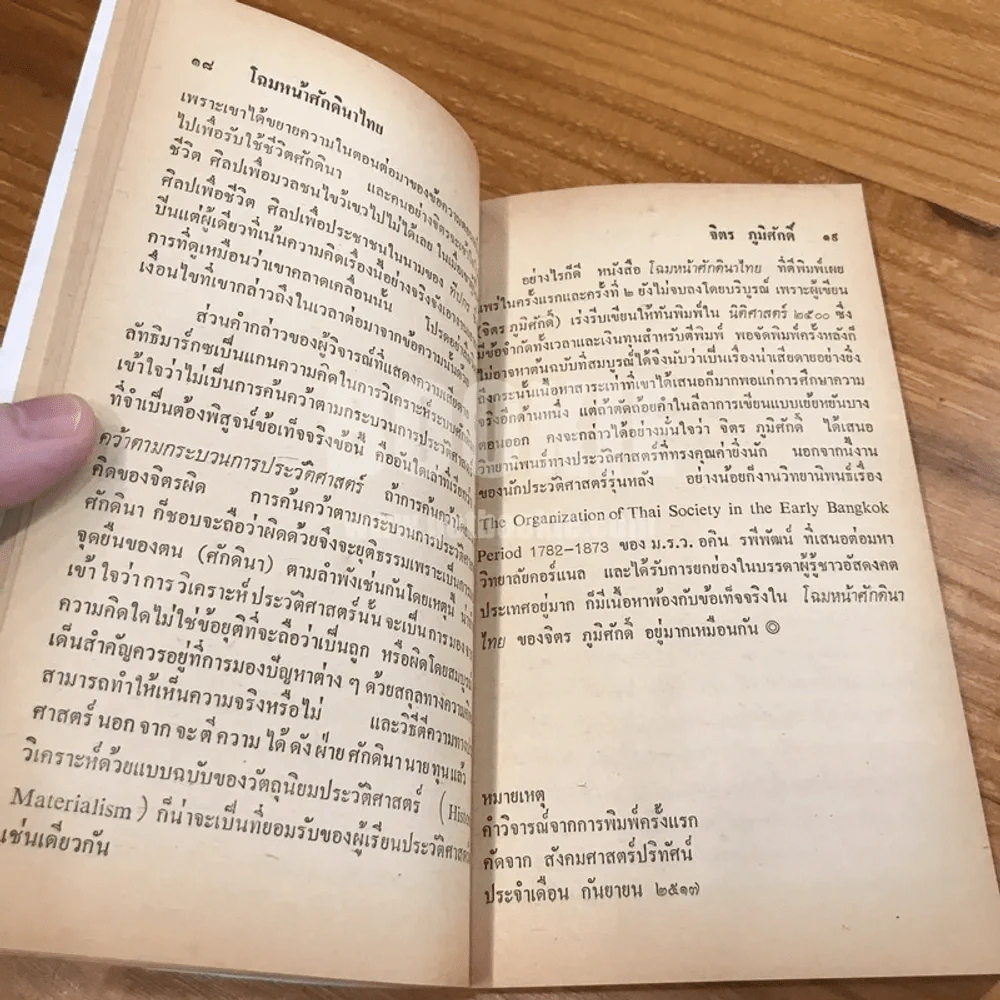 ๑๘ โฉมหน้าศักดินาไทย
เพราะเขาได้ขยายความในตอนต่อมาของข้อความ
ไปเพื่อรับใช้ชีวิตศักดินา และคนอย่างจิตรจะเข้า
ชีวิต ศิลปเพื่อมวลชนไขว้เขวไปไม่ได้เลย ในเมื่อ
ศิลปเพื่อชีวิต ศิลปเพื่อประชาชนในนามของ ทีปกร
ปืนแต่ผู้เดียวที่เน้นความคิดเรื่องนี้อย่างจริงจังเอางาน
การที่ดูเหมือนว่าเขาคลาดเคลื่อนนั้น โปรดอย่า
เงื่อนไขที่เขากล่าวถึงในเวลาต่อมาจากข้อความนั้นด้วย
ส่วนคำกล่าวของผู้วิจารณ์ที่แสดงความเสียดาย
ลัทธิมาร์กซเป็นแกนความคิดในการวิเคราะห์ระบบศักดินา
เข้าใจว่าไม่เป็นการค้นคว้าตามกระบวนการประวัติศาสตร์
ที่จำเป็นต้องพิสูจน์ข้อเท็จจริงข้อนี้ คืออันใดเล่าที่เรียกว่า
คว้าตามกระบวนการประวัติศาสตร์ ถ้าการค้นคว้า
คิดของจิตรผิด การค้นคว้าตามกระบวนการประวัติศาสตร์
ศักดินา ก็ชอบจะถือว่าผิดด้วยจึงจะยุติธรรมเพราะเป็นการ
จุดยืนของตน (ศักดินา) ตามลำพังเช่นกันโดยเหตุนี้
เข้าใจว่าการวิเคราะห์ประวัติศาสตร์นั้นจะเป็นการมอง
ความคิดใดไม่ใช่ข้อยุติที่จะถือว่าเป็นถูก หรือผิดโดยสมบูรณ์
เด็นสำคัญควรอยู่ที่การมองปัญหาต่าง ๆ ด้วยสกุลทางความคิด
สามารถทำให้เห็นความจริงหรือไม่ และวิธีตีความทาง
ศาสตร์นอกจากจะตีความได้ดังฝ่ายศักดินานายทุนแล้ว
วิเคราะห์ด้วยแบบฉบับของวัตถุนิยมประวัติศาสตร์
Materialism) ก็น่าจะเป็นที่ยอมรับของผู้เรียนประวัติศาสตร์
เช่นเดียวกัน
จิตร ภูมิศักดิ์ ๑๙
อย่างไรก็ดี หนังสือ โฉมหน้าศักดินาไทย ที่ตีพิมพ์เผย
แพร่ในครั้งแรกและครั้งที่ ๒ ยังไม่จบลงโดยบริบูรณ์ เพราะผู้เขียน
(จิตร ภูมิศักดิ์) เร่งรีบเขียนให้ทันพิมพ์ใน นิติศาสตร์ ๒๕๐๐ ซึ่ง
มีข้อจำกัดทั้งเวลาและเงินทุนสำหรับตีพิมพ์ พอจัดพิมพ์ครั้งหลังก็
ไม่อาจหาต้นฉบับที่สมบูรณ์ได้จึงนับว่าเป็นเรื่องน่าเสียดายอย่างยิ่ง
ถึงกระนั้นเนื้อหาสาระเท่าที่เขาได้เสนอก็มากพอแก่การศึกษาความ
จริงอีกด้านหนึ่ง แต่ถ้าตัดถ้อยคำในลีลาการเขียนแบบเย้ยหยันบาง
ตอนออก คงจะกล่าวได้อย่างมั่นใจว่า จิตร ภูมิศักดิ์ ได้เสนอ
วิทยานิพนธ์ทางประวัติศาสตร์ที่ทรงคุณค่ายิ่งนัก นอกจากนี้งาน
ของนักประวัติศาสตร์รุ่นหลัง อย่างน้อยก็งานวิทยานิพนธ์เรื่อง
The Organization of Thai Society in the Early Bangkok
Period 1782-1873 ของ ม.ร.ว. อคิน รพีพัฒน์ ที่เสนอต่อมหา
วิทยาลัยคอร์แนล และได้รับการยกย่องในบรรดาผู้รู้ชาวอัสดงคต
ประเทศอยู่มาก ก็มีเนื้อหาพ้องกับข้อเท็จจริงใน โฉมหน้าศักดินา
ไทย ของจิตร ภูมิศักดิ์ อยู่มากเหมือนกัน ◎
หมายเหตุ
คำวิจารณ์จากการพิมพ์ครั้งแรก
คัดจาก สังคมศาสตร์ปริทัศน์
ประจำเดือน กันยายน ๒๕๑๗